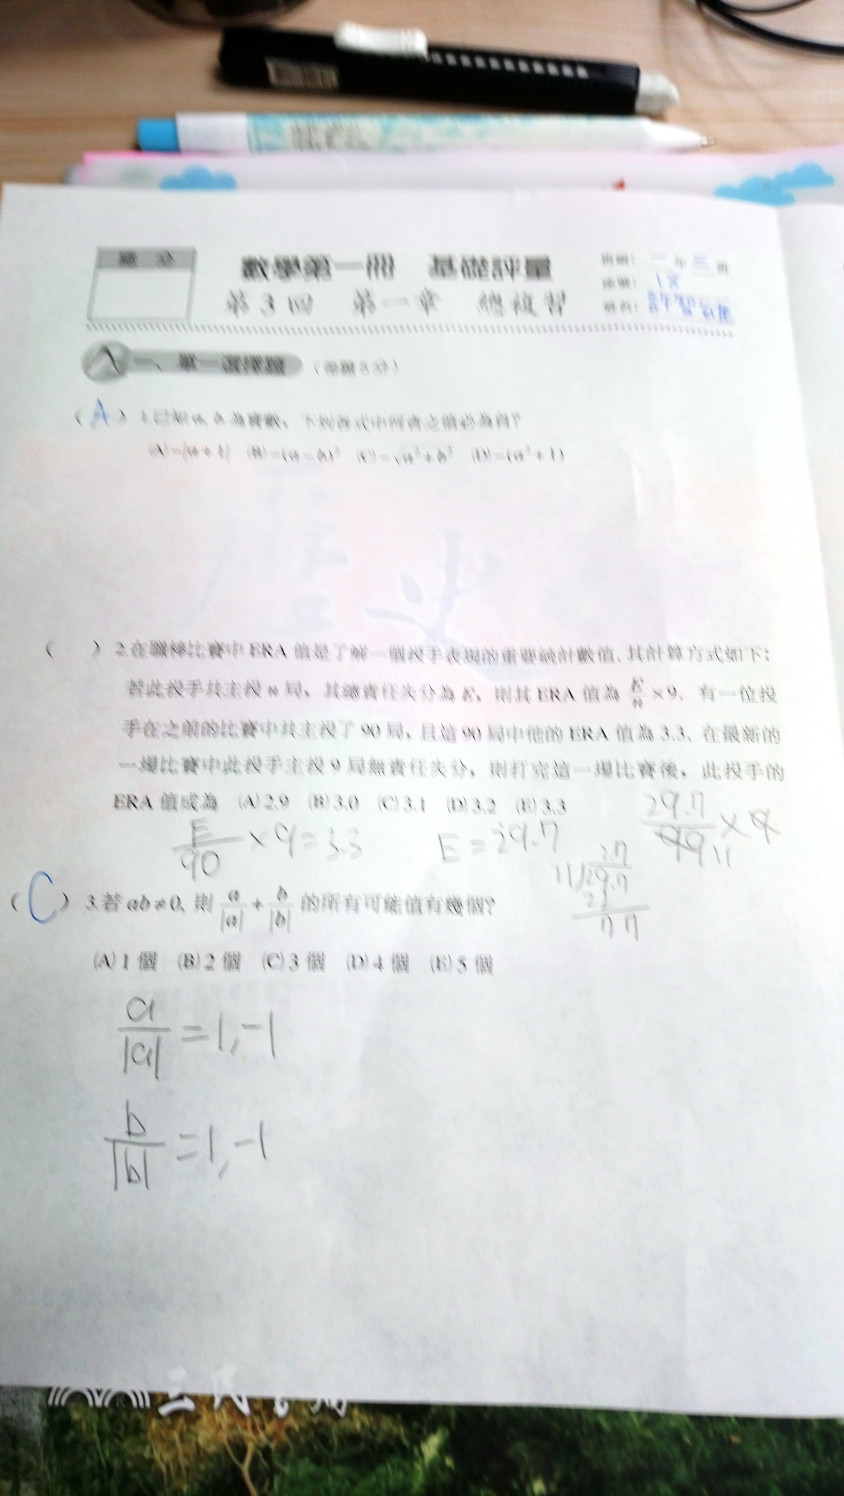 總分
數學第一冊 基礎評量
第3回 第一章 總複習
一年三班
一、單一選擇題 (每題8分)
(A) 1.已知a, b為實數，下列各式中何者之值必為負?
(A)-|a+1| (B)-(a-b)² (C)-√a²+b² (D)-(a²+1)
( ) 2.在職棒比賽中ERA值是了解一個投手表現的重要統計數值，其計算方式如下：
若此投手共主投n局，其總責任失分為E，則其ERA值為E/n×9。有一位投
手在之前的比賽中共主投了90局，且這90局中他的ERA值為3.3，在最新的
一場比賽中此投手主投9局無責任失分，則打完這一場比賽後，此投手的
ERA值成為 (A)2.9 (B)3.0 (C)3.1 (D)3.2 (E)3.3
E/90 ×9=3.3 E=29.7 29.7/99 11 ×9
2.7
11)29.7
77
(C) 3.若ab≠0, 則 a/|a| + b/|b| 的所有可能值有幾個?
(A)1個 (B)2個 (C)3個 (D)4個 (E)5個
a/|a| =1,-1
b/|b| =1,-1
三民書局